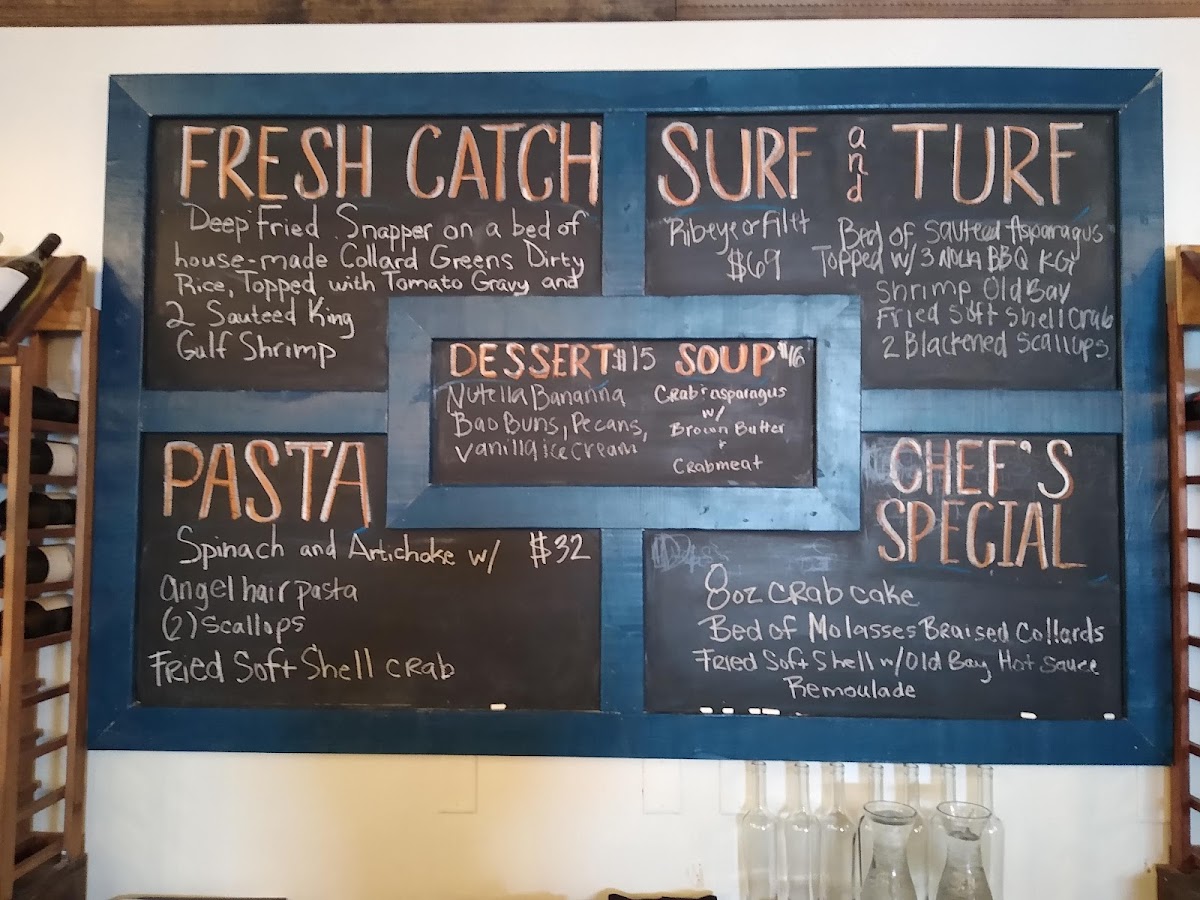 FRESH CATCH
Deep Fried Snapper on a bed of
house-made Collard Greens Dirty
Rice, Topped with Tomato Gravy and
2 Sauteed King
Gulf Shrimp
SURF and TURF
Ribeye or Filtt
$69
Bed of Sauteed Asparagus
Topped w/ 3 BBQ KG
Shrimp Old Bay
Fried Soft Shell Crab
2 Blackened Scallops
DESSERT $15
Nutella Bananna
Bao Buns, Pecans,
vanilla ice cream
SOUP $16
Crab + asparagus
w/
Brown Butter
+
Crabmeat
PASTA
Spinach and Artichoke w/ $32
angel hair pasta
(2) scallops
Fried Soft Shell crab
CHEF'S
SPECIAL
8oz CRab cake
Bed of Molasses Braised Collards
Fried Soft Shell w/ Old Bay Hot Sauce
Remoulade